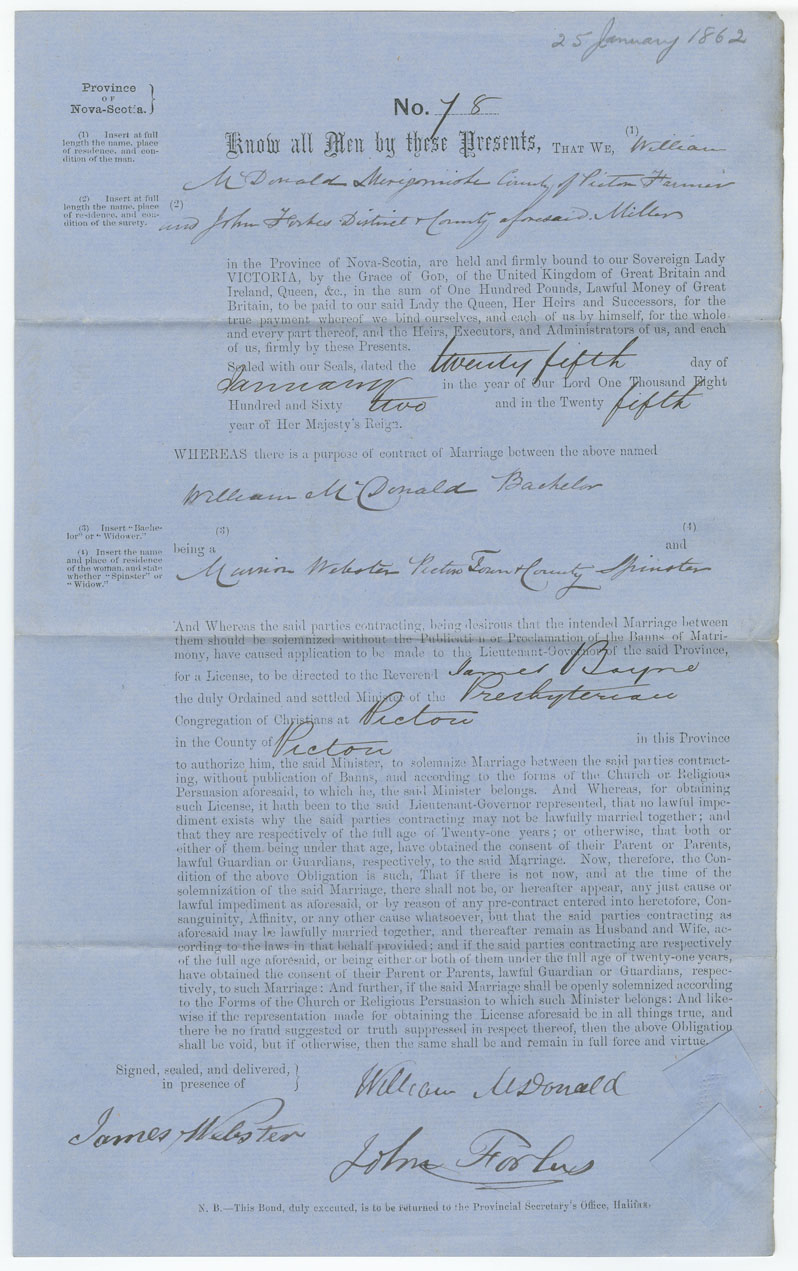 25 January 1862
Province
OF
Nova-Scotia.
No. 78
(1) Insert at full
length the name, place
of residence, and con-
dition of the man.
Know all Men by these Presents, THAT WE, (1) William
McDonald Merigomishe County of Pictou Farmer
(2) Insert at full
length the name, place
of residence, and con-
dition of the surety.
(2) and John Forbes District & County aforesaid. Miller
in the Province of Nova-Scotia, are held and firmly bound to our Sovereign Lady
VICTORIA, by the Grace of GOD, of the United Kingdom of Great Britain and
Ireland, Queen, &c., in the sum of One Hundred Pounds, Lawful Money of Great
Britain, to be paid to our said Lady the Queen, Her Heirs and Successors, for the
true payment whereof we bind ourselves, and each of us by himself, for the whole
and every part thereof, and the Heirs, Executors, and Administrators of us, and each
of us, firmly by these Presents.
Sealed with our Seals, dated the twenty fifth day of
January in the year of Our Lord One Thousand Eight
Hundred and Sixty two and in the Twenty fifth
year of Her Majesty's Reign.
WHEREAS there is a purpose of contract of Marriage between the above named
William McDonald Bachelor
(3) Insert "Bache-
lor" or "Widower."
(4) Insert the name
and place of residence
of the woman, and state
whether "Spinster" or
"Widow."
(3) (4)
being a and
Marrion Webster Pictou Town & County Spinster
And Whereas the said parties contracting, being desirous that the intended Marriage between
them should be solemnized without the Publication or Proclamation of the Banns of Matri-
mony, have caused application to be made to the Lieutenant-Governor of the said Province,
for a License, to be directed to the Reverend James Bayne
the duly Ordained and settled Minister of the Presbyterian
Congregation of Christians at Pictou
in the County of Pictou in this Province
to authorize him, the said Minister, to solemnize Marriage between the said parties contract-
ing, without publication of Banns, and according to the forms of the Church or Religious
Persuasion aforesaid, to which he, the said Minister belongs. And Whereas, for obtaining
such License, it hath been to the said Lieutenant-Governor represented, that no lawful impe-
diment exists why the said parties contracting may not be lawfully married together; and
that they are respectively of the full age of Twenty-one years; or otherwise, that both or
either of them being under that age, have obtained the consent of their Parent or Parents,
lawful Guardian or Guardians, respectively, to the said Marriage. Now, therefore, the Con-
dition of the above Obligation is such, That if there is not now, and at the time of the
solemnization of the said Marriage, there shall not be, or hereafter appear, any just cause or
lawful impediment as aforesaid, or by reason of any pre-contract entered into heretofore, Con-
sanguinity, Affinity, or any other cause whatsoever, but that the said parties contracting as
aforesaid may be lawfully married together, and thereafter remain as Husband and Wife, ac-
cording to the laws in that behalf provided; and if the said parties contracting are respectively
of the full age aforesaid, or being either or both of them under the full age of twenty-one years,
have obtained the consent of their Parent or Parents, lawful Guardian or Guardians, respec-
tively, to such Marriage: And further, if the said Marriage shall be openly solemnized according
to the Forms of the Church or Religious Persuasion to which such Minister belongs: And like-
wise if the representation made for obtaining the License aforesaid be in all things true, and
there be no fraud suggested or truth suppressed in respect thereof, then the above Obligation
shall be void, but if otherwise, then the same shall be and remain in full force and virtue.
Signed, sealed, and delivered,
in presence of
William McDonald
James Webster
John Forbes
N. B.—This Bond, duly executed, is to be returned to the Provincial Secretary's Office, Halifax.